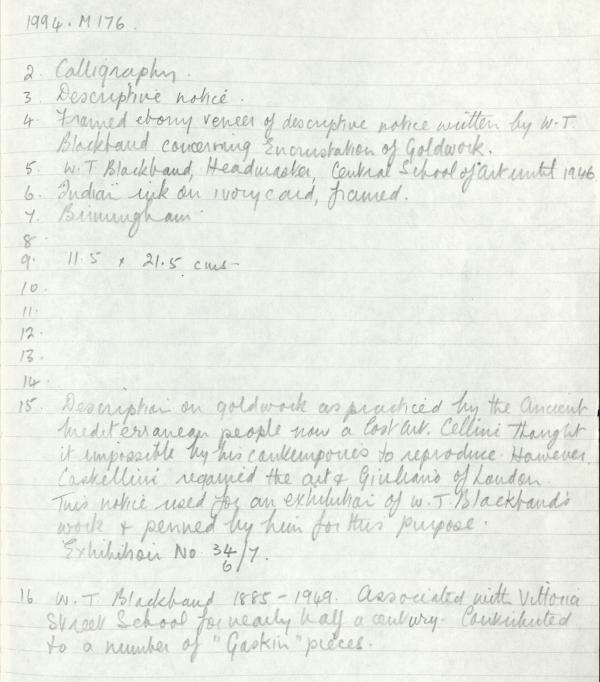 1994. M 176.
2. Calligraphy.
3. Descriptive notice.
4. Framed ebony veneer of descriptive notice written by W.T.
Blackband concerning Encrustation of Goldwork.
5. W.T Blackband, Headmaster, Central School of Art until 1946
6. Indian ink on ivory card, framed.
7. Birmingham.
8.
9. 11.5 x 21.5 cms-
10.
11.
12.
13.
14.
15. Description on goldwork as practiced by the Ancient
Mediterranean people now a lost art. Cellini thought
it impossible by his contempories to reproduce. However
Castellini regained the art & Giuliano of London.
This notice used for an exhibition of W.T. Blackband's
work & penned by him for this purpose.
Exhibition No. 34/7.
6
16 W.T. Blackband 1885-1949. Associated with Vittoria
Street School for nearly half a century. Contributed
to a number of "Gaskin" pieces.